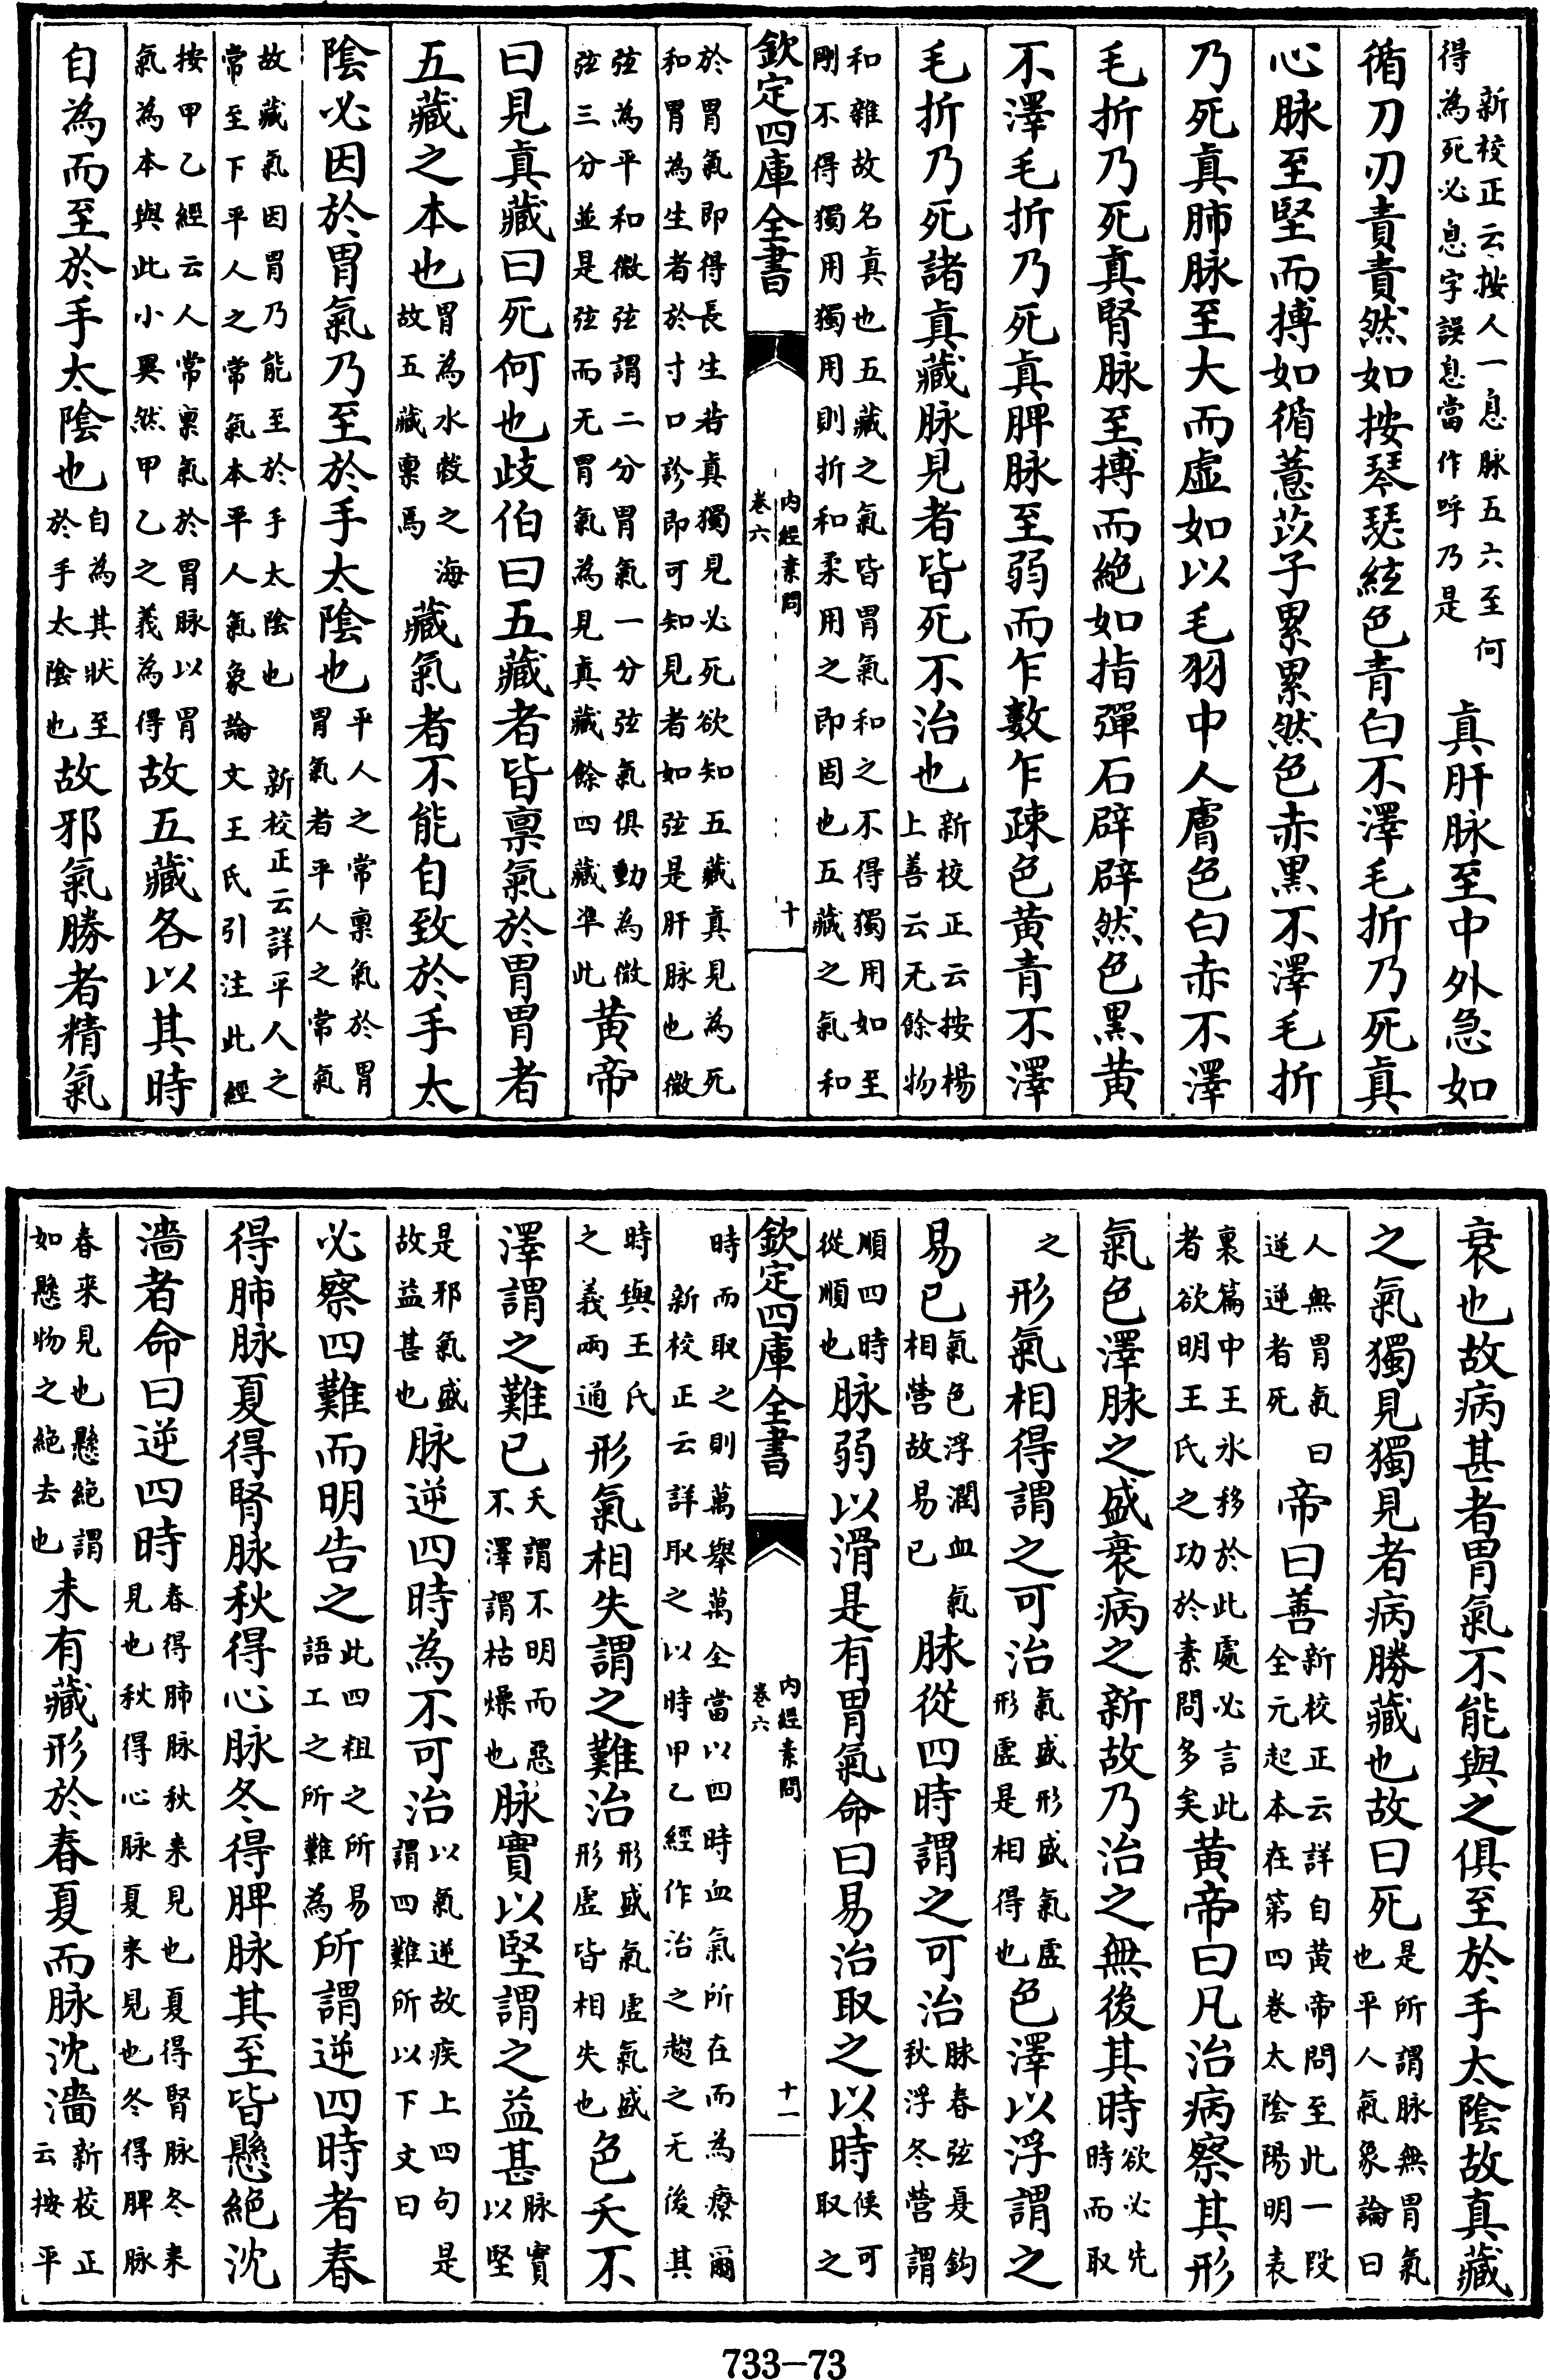 新校正云按人一息脉五六至何
得為死必息字誤息當作呼乃是
真肝脉至中外急如
循刀刃責責然如按琴瑟絃色青白不澤毛折乃死真
心脉至堅而搏如循薏苡子累累然色赤黑不澤毛折
乃死真肺脉至大而虚如以毛羽中人膚色白赤不澤
毛折乃死真腎脉至搏而絶如指彈石辟辟然色黒黄
不澤毛折乃死真脾脉至弱而乍數乍疎色黄青不澤
毛折乃死諸真藏脉見者皆死不治也
新校正云按楊
上善云无餘物
和雜故名真也五藏之氣皆胃氣和之不得獨用如至
剛不得獨用獨用則折和柔用之即固也五藏之氣和
欽定四庫全書
内經素問
卷六
十
於胃氣即得長生若真獨見必死欲知五藏真見為死
和胃為生者於寸口診即可知見者如弦是肝脉也微
弦為平和微弦謂二分胃氣一分弦氣俱動為微
弦三分並是弦而无胃氣為見真藏餘四藏凖此
黄帝
曰見真藏曰死何也歧伯曰五藏者皆禀氣於胃胃者
五藏之本也
胃為水榖之海
故五藏禀焉
藏氣者不能自致於手太
陰必因於胃氣乃至於手太陰也
平人之常禀氣於胃
胃氣者平人之常氣
故藏氣因胃乃能至於手太陰也 新校正云詳平人之
常至下平人之常氣本平人氣象論文王氏引注此經
按甲乙經云人常禀氣於胃脉以胃
氣為本與此小異然甲乙之義為得
故五藏各以其時
自為而至於手太陰也
自為其狀至
於手太陰也
故邪氣勝者精氣
衰也故病甚者胃氣不能與之俱至於手太陰故真藏
之氣獨見獨見者病勝藏也故曰死
是所謂脉無胃氣
也平人氣象論曰
人無胃氣曰
逆逆者死
帝曰善
新校正云詳自黄帝問至此一段
全元起本在第四卷太陰陽明表
裏篇中王氷移於此處必言此
者欲明王氏之功於素問多矣
黄帝曰凡治病察其形
氣色澤脉之盛衰病之新故乃治之無後其時
欲必先
時而取
之
形氣相得謂之可治
氣盛形盛氣虚
形虚是相得也
色澤以浮謂之
易已
氣色浮潤血氣
相營故易已
脉從四時謂之可治
脉春弦夏鈎
秋浮冬營謂
順四時
從順也
脉弱以滑是有胃氣命曰易治取之以時
候可
取之
欽定四庫全書
内經素問
卷六
十一
時而取之則萬舉萬全當以四時血氣所在而為療爾
新校正云詳取之以時甲乙經作治之趨之无後其
時與王氏
之義兩通
形氣相失謂之難治
形盛氣虚氣盛
形虚皆相失也
色夭不
澤謂之難已
夭謂不明而惡
不澤謂枯燥也
脉實以堅謂之益甚
脉實
以堅
是邪氣盛
故益甚也
脉逆四時為不可治
以氣逆故疾上四句是
謂四難所以下文曰
必察四難而明告之
此四粗之所易
語工之所難為
所謂逆四時者春
得肺脉夏得腎脉秋得心脉冬得脾脉其至皆懸絶沈
濇者命曰逆四時
春得肺脉秋来見也夏得腎脉冬来
見也秋得心脉夏来見也冬得脾脉
春来見也懸絶謂
如懸物之絶去也
未有藏形於春夏而脉沈濇
新校正
云按平
733—73